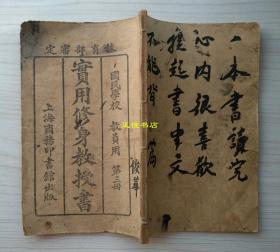 一本書讀完
心内很喜歡
提起書中文
不能背一篇
教育部審定
國民學校 教員用 第三冊
實用修身教授書
上海商務印書館出版